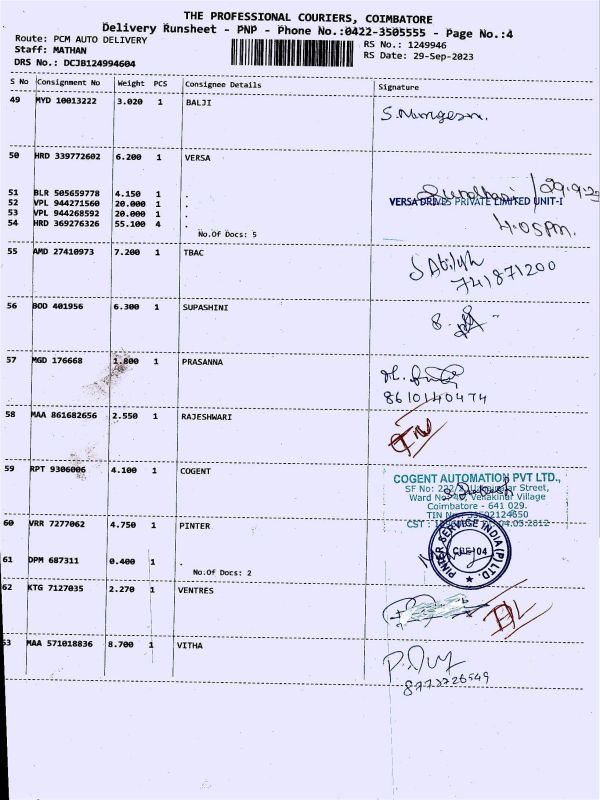 THE PROFESSIONAL COURIERS, COIMBATORE
Delivery Runsheet - PNP - Phone No.:0422-3505555 - Page No.:4
Route: PCM AUTO DELIVERY
RS No.: 1249946
Staff: MATHAN
RS Date: 29-Sep-2023
DRS No.: DCJB124994604
S No Consignment No Weight PCS Consignee Details Signature
49 MYD 10013222 3.020 1 BALJI
S.Murugesan.
50 HRD 339772602 6.200 1 VERSA
51 BLR 505659778 4.150 1 .
52 VPL 944271560 20.000 1 .
VERSA DRIVES PRIVATE LIMITED UNIT-I
53 VPL 944268592 20.000 1 .
54 HRD 369276326 55.100 4 .
4.05pm.
No.Of Docs: 5
55 AMD 27410973 7.200 1 TBAC
741871200
56 BOD 401956 6.300 1 SUPASHINI
57 MGD 176668 1.800 1 PRASANNA
8610140474
58 MAA 861682656 2.550 1 RAJESHWARI
59 RPT 9306006 4.100 1 COGENT
COGENT AUTOMATION PVT LTD.,
SF No: Street,
Ward No: Vellakinar Village
Coimbatore - 641 029.
60 VRR 7277062 4.750 1 PINTER
PINTER SERVICE INDIA (P) LTD.
61 DPM 687311 0.400 1 .
No.Of Docs: 2
62 KTG 7127035 2.270 1 VENTRES
53 MAA 571018836 8.700 1 VITHA
8778726549